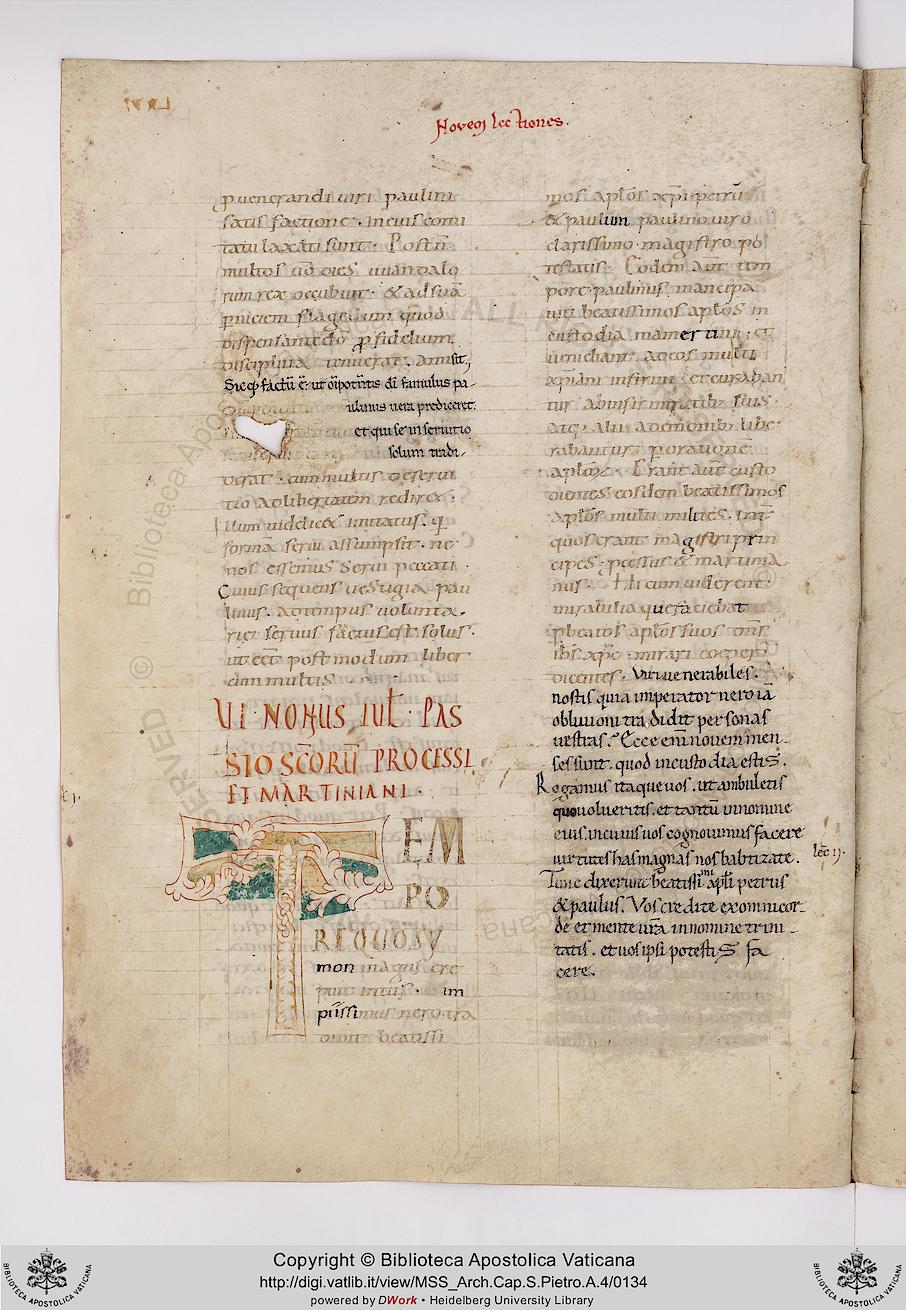 Novem lectiones.
p uenerandi uiri paulini
satis factione. in cuius comi
tatu laxati sunt. Post n̄
multos u̅o dies uuandalo
rum rex occubuit. & ad suā
p̱niciem flagellum quod
dispensante dō p̱ fidelium
disciplina tenuerat. amisit;
Sicq; factū ē. ut om̄ipotentis dī famulus pa-
ulinus uera prediceret.
et qui se in seruitio
solum tradi-
derat. cum multis a serui
tio ad libertatem rediret.
Illum uidelic& imitatus. q
formā serui assumpsit. ne
nos essemus serui peccati.
Cuius sequens uestigia pau
linus. ad tempus uolunta-
rie seruus factus est solus.
ut eēt postmodum liber
cum multis
VI NONUS IUL. PAS
SIO SC̄ORŪ PROCESSI
ET MARTINIANI.
TEM
PO
RE QUO SY
mon magus cre
puit intus. im
piissimus nero tra
didit beatissi
mos aplōs xp̄i petrū
& paulum paulino uiro
clarissimo magistro po
testatis. Eodem aūt tem
pore paulinus mancipa
uit beatissimos aplōs in
custodia mamertini. et
ueniebant ad eos multi
xp̄iani infirmi. et curaban
tur ab infirmitatib; suis.
atq; alii a demonib; libe
rabantur p̱ orationē
aplōꝝ. Erant aūt custo
dientes eosdem beatissimos
aplōs multi milites. int̄
quos erant magistri prin
cipes. pcessus & martinia
nus. Hi cum uiderent
mirabilia que faciebat
p̱ beatos aplōs suos dn̄s
ihs xp̄c. mirari coeper
dicentes. Viri uenerabiles.
nostis quia imperator nero iā
obliuioni tradidit personas
uestras. Ecce enī nouem men-
ses sunt. quod in custodia estis.
Rogamus itaque uos. ut ambuletis
quo uolueritis. et tantū in nomine
eius. in cuius uos cognouimus facere
uirtutes has magnas nos babtizate.
lec̄ ii.
Tunc dixerunt beatissimi apl̄i petrus
& paulus. Vos credite ex omni cor-
de et mente ur̄a in nomine trini-
tatis. et uos ipsi potestis fa
cere.
Copyright © Biblioteca Apostolica Vaticana
http://digi.vatlib.it/view/MSS_Arch.Cap.S.Pietro.A.4/0134
powered by DWork • Heidelberg University Library